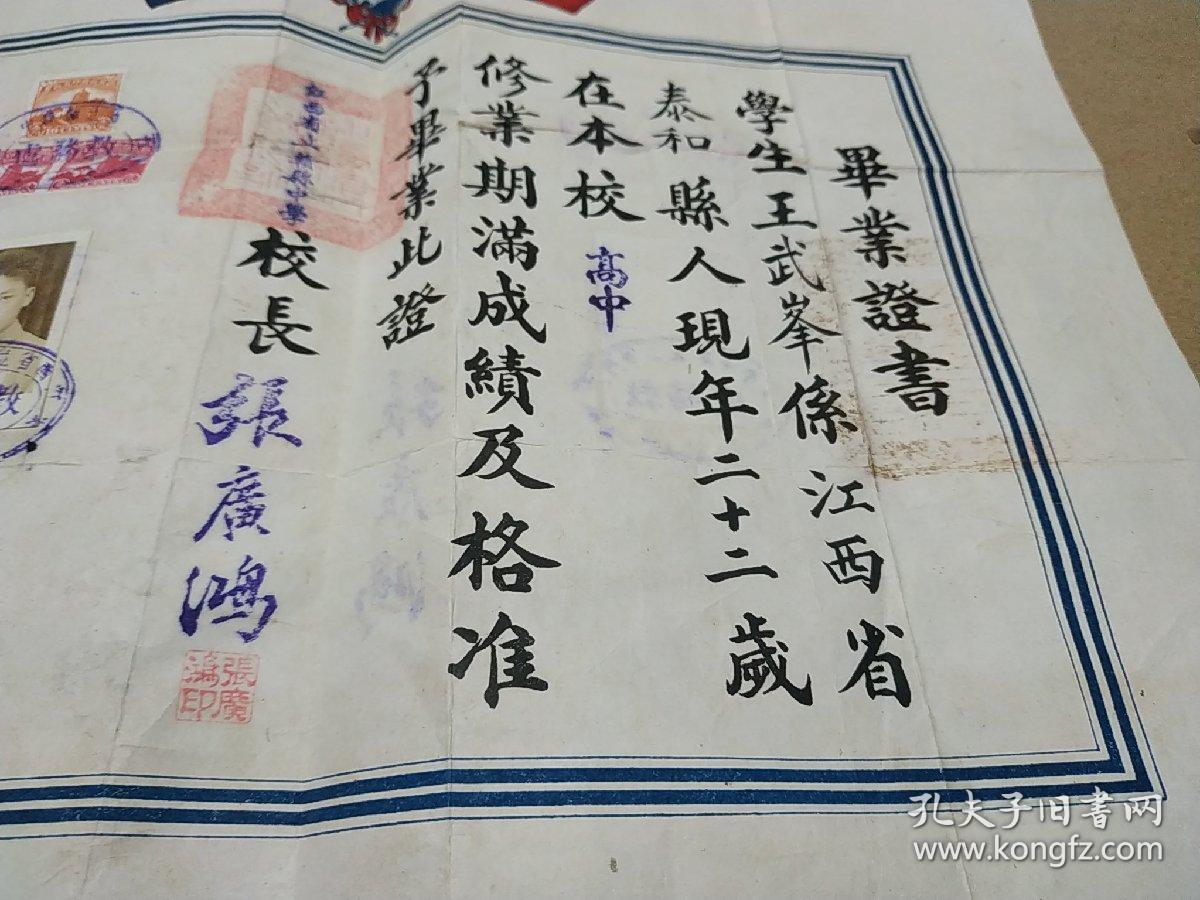 畢業證書
學生王武峯係江西省
泰和縣人現年二十二歲
在本校高中
修業期滿成績及格准
予畢業此證
校長張廣鴻
張廣
鴻印
教務處
孔夫子旧书网
www.kongfz.com